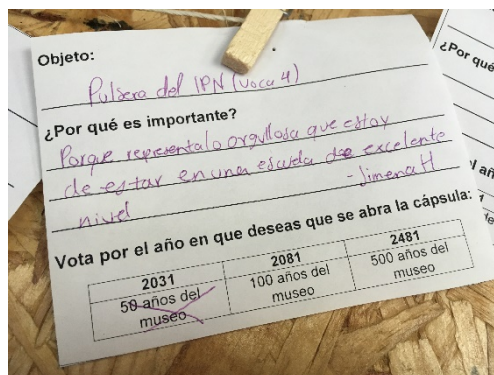 Objeto:
Pulsera del IPN (Voca 4)
¿Por qué es importante?
Porque representa lo orgullosa que estoy
de estar en una escuela de excelente
nivel
- Jimena H
Vota por el año en que deseas que se abra la cápsula:
2031 2081 2481
50 años del museo
100 años del museo
500 años del museo
¿Por qué